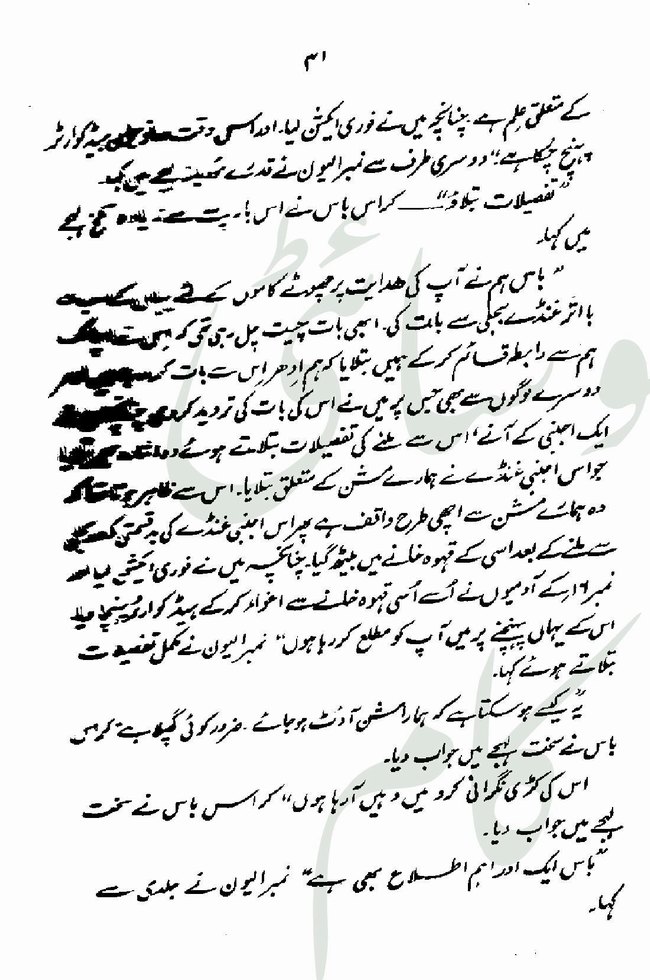 ۳۱
کے متعلق علم ہے۔ چنانچہ میں نے فوری ایکشن لیا۔ اور اس وقت ہیڈ کوارٹر
پہنچ چکا ہے" دوسری طرف سے نمبر الیون نے قدرے لہجے میں کہا۔
"تفصیلات بتلاؤ" ــــ کراس باس نے اس بار پہلے سے زیادہ تلخ لہجے
میں کہا۔
"باس ہم نے آپ کی ھدایت پر چھوٹے کاموں کے لئے یہاں کے سب سے
با اثر غنڈے سے بات کی۔ ابھی بات چیت چل رہی تھی کہ
ہم سے رابطہ قائم کر کے ہمیں بتلایا کہ ہم اِدھر اس سے بات کر
دوسرے لوگوں سے بھی جس پر میں نے اس کی بات کی تردید کر دی
ایک اجنبی کے آنے، اس سے ملنے کی تفصیلات بتلاتے ہوئے
جو اس اجنبی غنڈے نے ہمارے مشن کے متعلق بتلایا۔ اس سے ظاہر ہوتا تھا کہ
وہ ہمارے مشن سے اچھی طرح واقف ہے پھر اس اجنبی غنڈے کی بدقسمتی کہ
سے ملنے کے بعد اسی کے قہوہ خانے میں بیٹھ گیا۔ چنانچہ میں نے فوری ایکشن لیا اور
نمبر ۱۶ کے آدمیوں نے اُسے اُسی قہوہ خانے سے اغواء کر کے ہیڈ کوارٹر پہنچا دیا
اس کے یہاں پہنچنے پر میں آپ کو مطلع کر رہا ہوں" نمبر الیون نے مکمل تفصیلات
بتلاتے ہوئے کہا۔
"یہ کیسے ہو سکتا ہے کہ ہمارا مشن آؤٹ ہو جائے۔ ضرور کوئی گھپلا ہے" کراس
باس نے سخت لہجے میں جواب دیا۔
اس کی کڑی نگرانی کرو میں وہیں آ رہا ہوں" کراس باس نے سخت
لہجے میں جواب دیا۔
"باس ایک اور اہم اطلاع بھی ہے" نمبر الیون نے جلدی سے
کہا۔